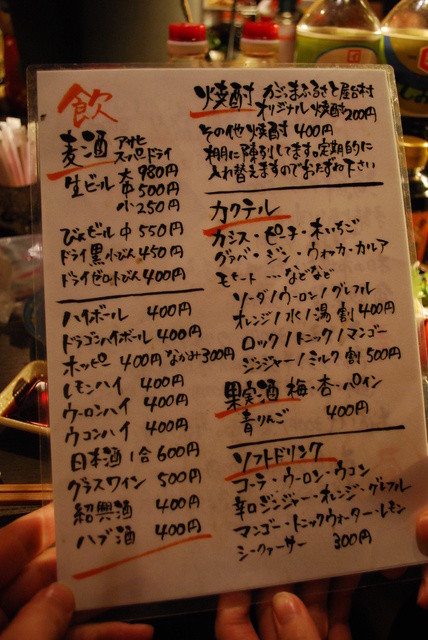 飲
麦酒 アサヒ
スーパードライ
生ビール 大 980円
中 500円
小 250円
びんビール 中 550円
ドライ黒小びん 450円
ドライゼロ小びん 400円
ハイボール 400円
ドラゴンハイボール 400円
ホッピー 400円 なかみ 300円
レモンハイ 400円
ウーロンハイ 400円
ウコンハイ 400円
日本酒 1合 600円
グラスワイン 500円
紹興酒 400円
ハブ酒 400円
焼酎 かごっまふるさと屋台村
オリジナル焼酎 200円
その他焼酎 400円
棚に陳列してます。定期的に
入れ替えますのでおたずね下さい
カクテル
カシス・ピーチ・木いちご
グァバ・ジン・ウォッカ・カルア
モヒート …などなど
ソーダ/ウーロン/グレフル
オレンジ/水/湯 割 400円
ロック/トニック/マンゴー
ジンジャー/ミルク 割 500円
果実酒 梅・杏・パイン
青りんご 400円
ソフトドリンク
コーラ・ウーロン・ウコン
辛口ジンジャー・オレンジ・グレフル
マンゴー・トニックウォーター・レモン
シークァーサー 300円